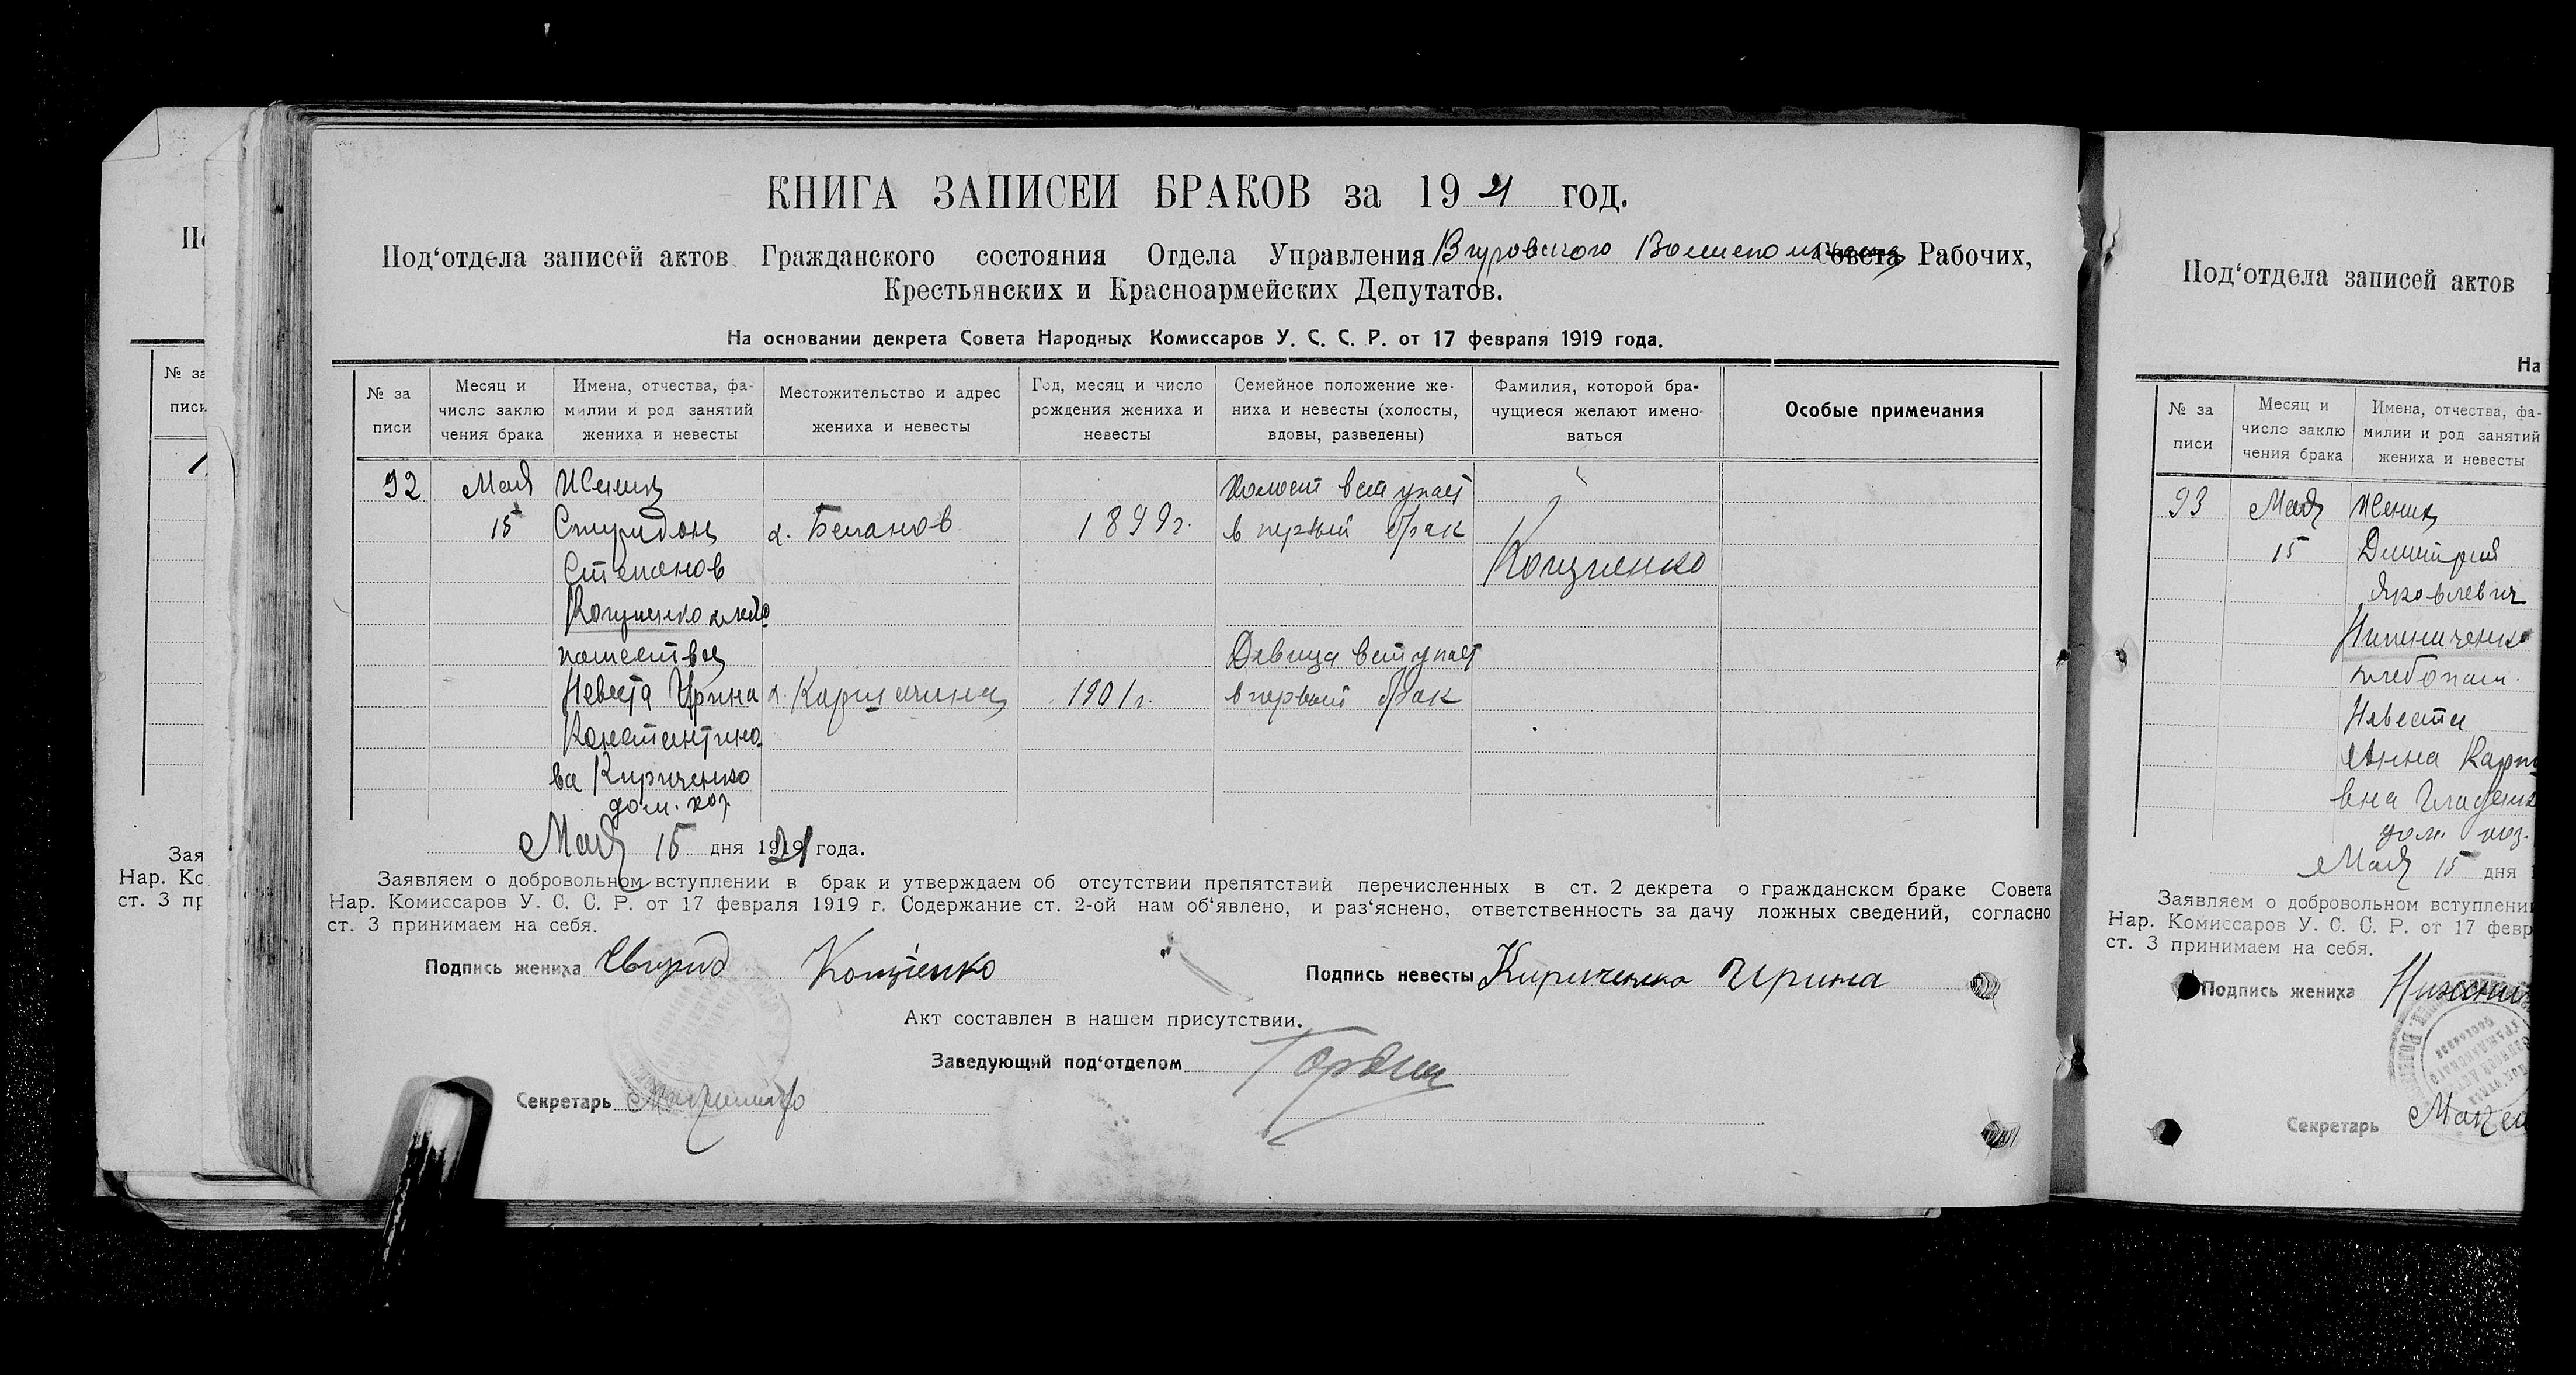 КНИГА ЗАПИСЕИ БРАКОВ за 1921 год.
Под‘отдела записей актов Гражданского состояния Отдела Управления Вгуровского Совета Рабочих,
Крестьянских и Красноармейских Депутатов.
На основании декрета Совета Народных Комиссаров У. С. С. Р. от 17 февраля 1919 года.
№ за
писи
Месяц и
число заклю
чения брака
Имена, отчества, фа-
милии и род занятий
жениха и невесты
Местожительство и адрес
жениха и невесты
Год, месяц и число
рождения жениха и
невесты
Семейное положение же-
ниха и невесты (холосты,
вдовы, разведены)
Фамилия, которой бра-
чущиеся желают имено-
ваться
Особые примечания
92
Мая
15
Жених
Спиридон
Степанов
пашество
Невеста Ирина
Константино
ва Кириченко
дом. хоз.
1899г.
1901г.
Холост вступает
в первый брак
Девица вступает
в первый брак
Мая 15 дня 1921 года.
Заявляем о добровольном вступлении в брак и утверждаем об отсутствии препятствий перечисленных в ст. 2 декрета о гражданском браке Совета
Нар. Комиссаров У. С. С. Р. от 17 февраля 1919 г. Содержание ст. 2-ой нам об‘явлено, и раз‘яснено, ответственность за дачу ложных сведений, согласно
ст. 3 принимаем на себя.
Подпись жениха
Подпись невесты Кириченко Ирина
Акт составлен в нашем присутствии.
Заведующий под‘отделом
Секретарь
Под‘отдела записей актов
На
№ за
писи
Месяц и
число заклю
чения брака
Имена, отчества, фа-
милии и род занятий
жениха и невесты
93
Мая
15
Жених
Дмитрий
Яковлевич
хлебопаш.
Невеста
Анна
дом. хоз.
Мая 15 дня
Заявляем о добровольном
Нар. Комиссаров У. С. С. Р. от 17
ст. 3 принимаем на себя.
Подпись жениха
Секретарь
№ за
Нар.
ст. 3